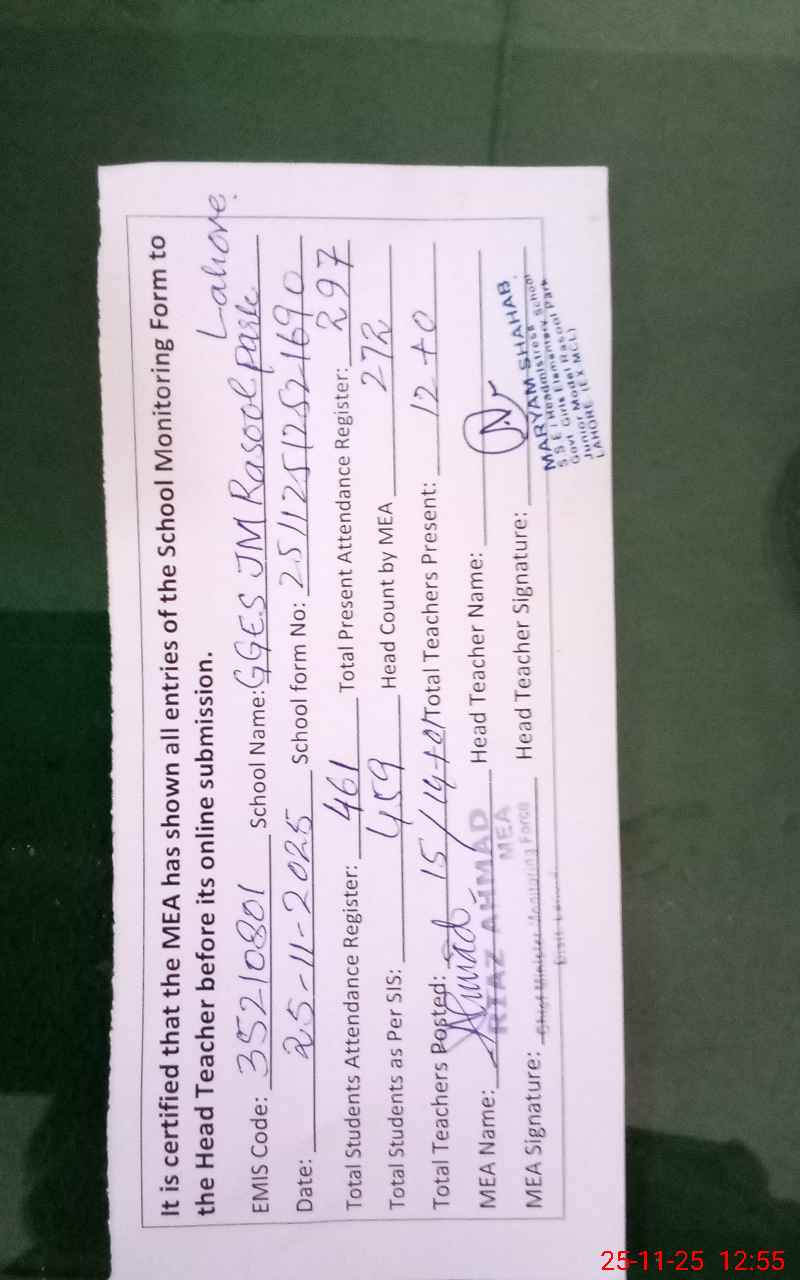 It is certified that the MEA has shown all entries of the School Monitoring Form to
the Head Teacher before its online submission.
Lahore.
EMIS Code: 35210801 School Name: GGES JM Rasool Park
Date: 25-11-2025 School form No: 25112512521690
Total Students Attendance Register: 461 Total Present Attendance Register: 297
Total Students as Per SIS: 459 Head Count by MEA 272
Total Teachers Posted: 15/14+01 Total Teachers Present: 12+0
MEA Name: Ahmad Head Teacher Name:
RIAZ AHMAD
MEA
MEA Signature: Head Teacher Signature:
Chief Minister Monitoring Force
MARYAM SHAHAB
S S E / Headmistress
Govt Girls Elementary School
Junior Model Rasool Park
LAHORE (EX MCL)
25-11-25 12:55